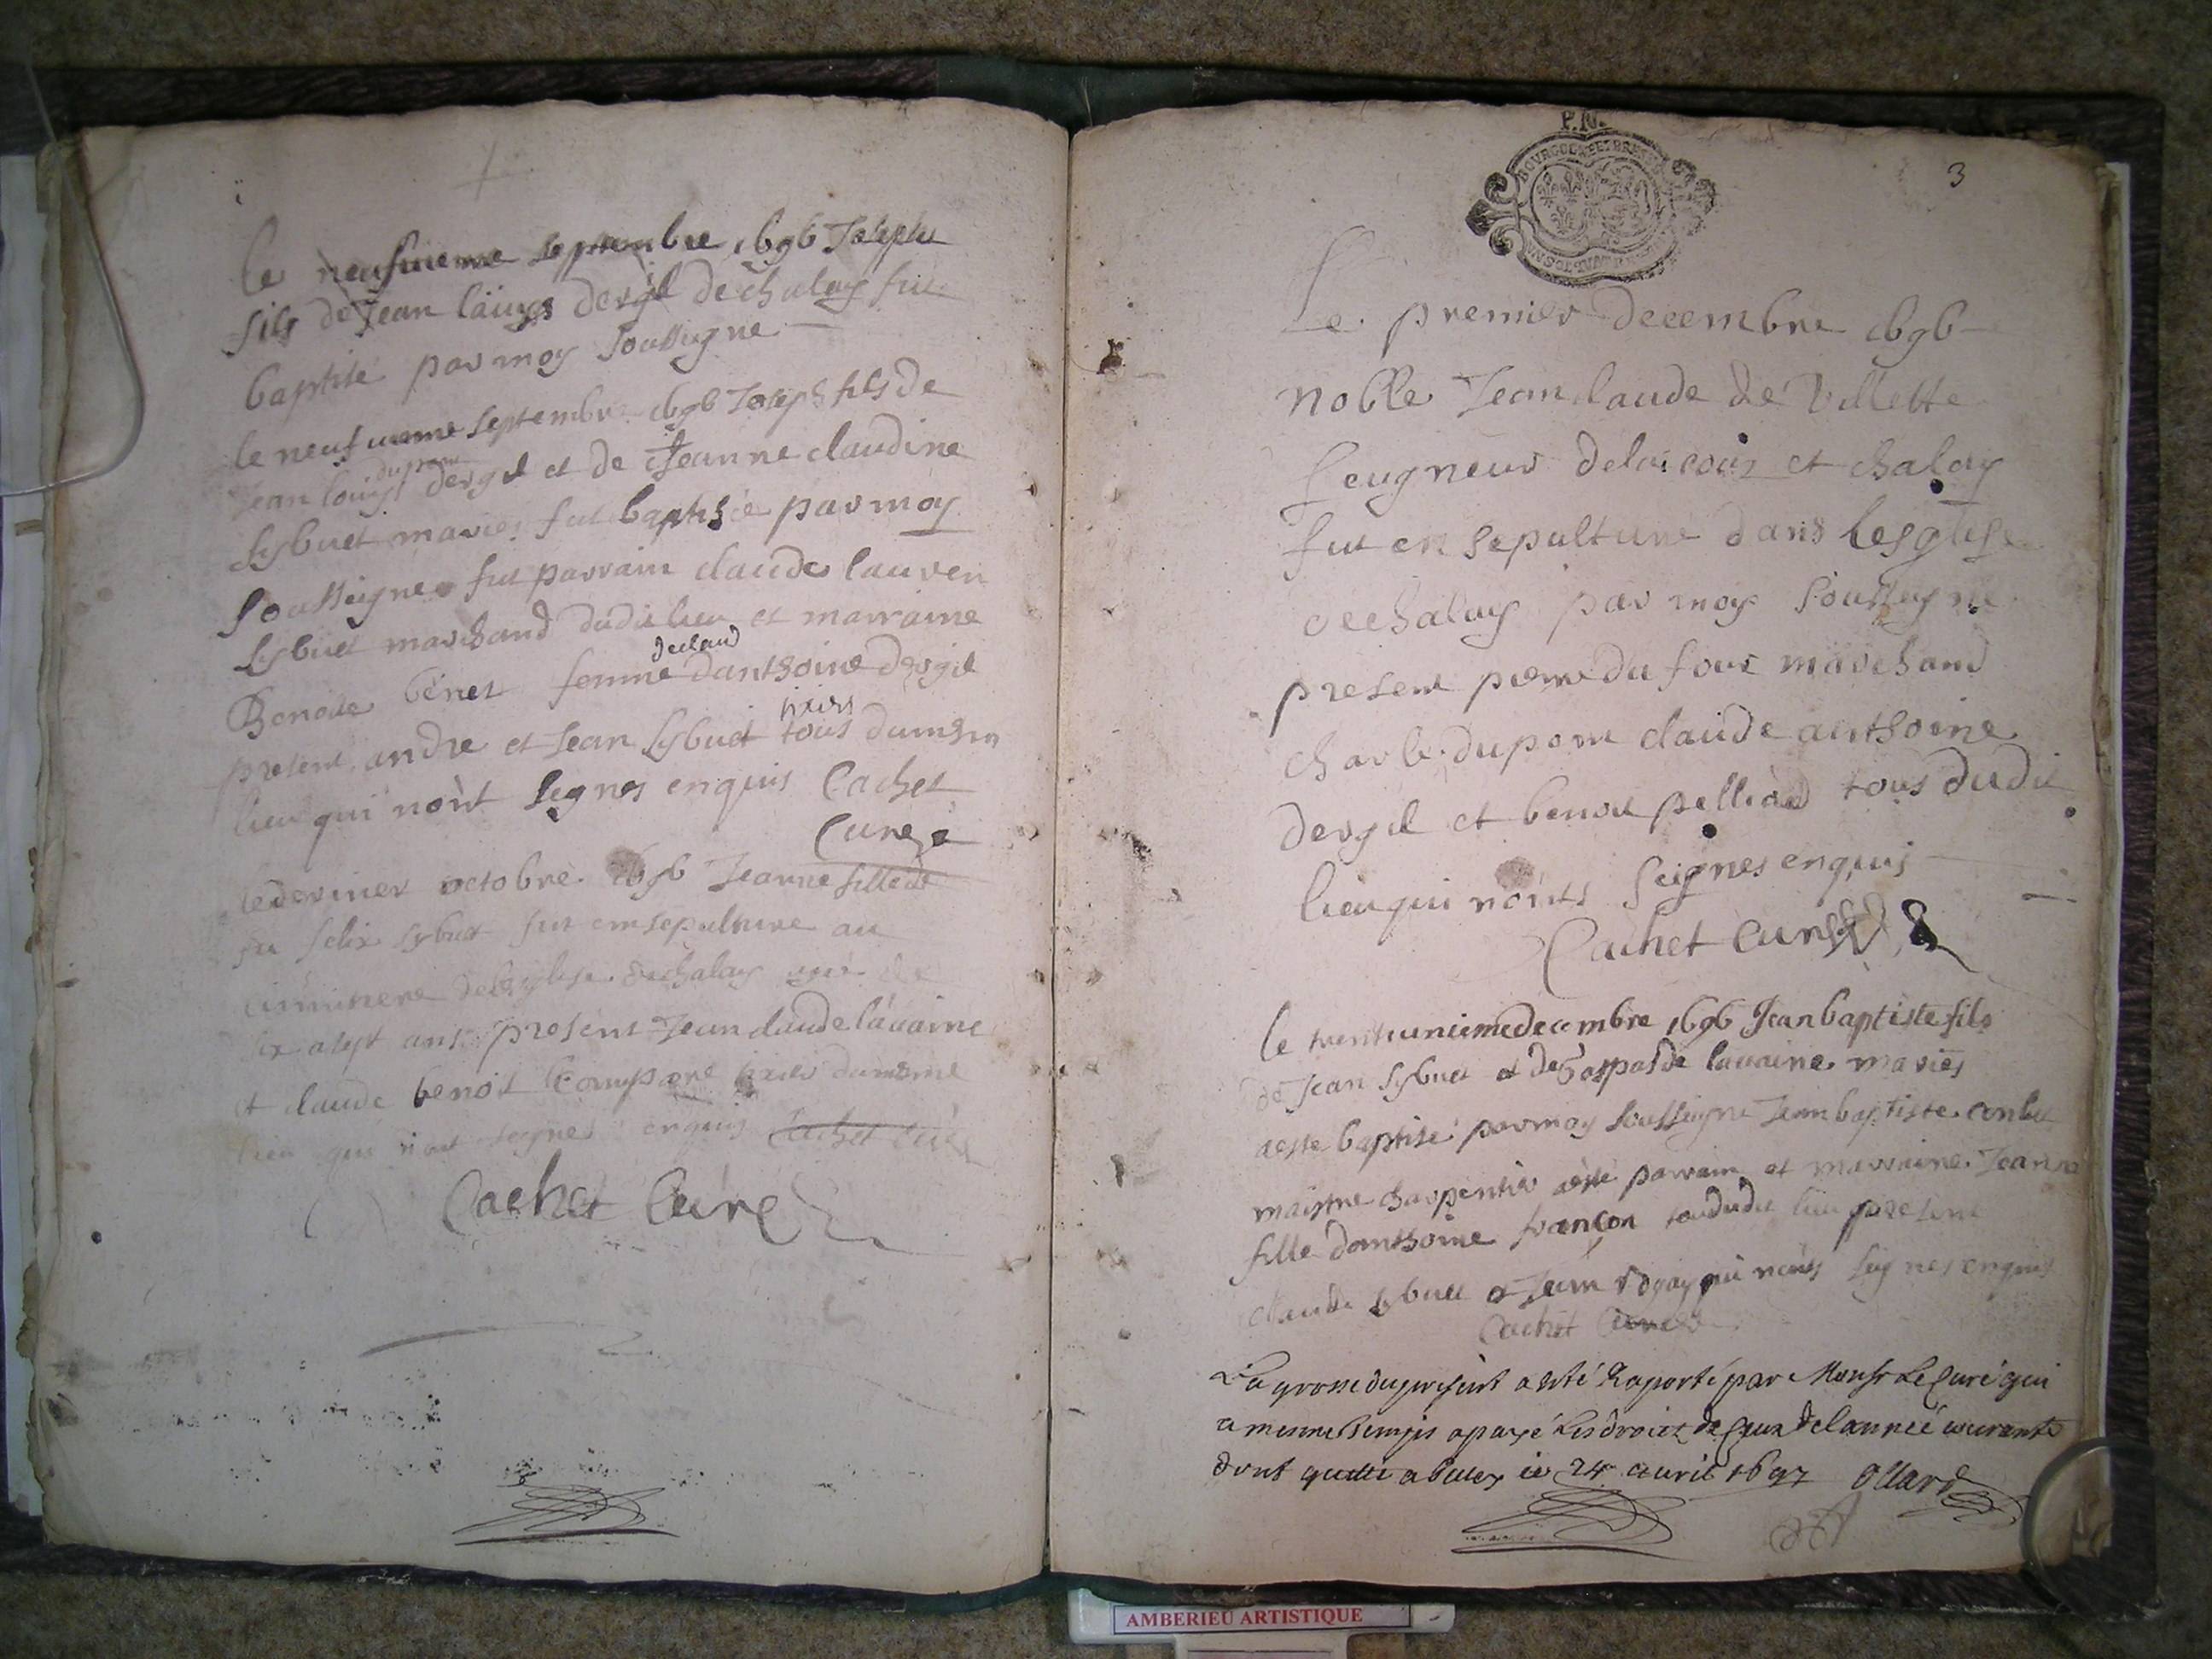 le neufuieme septembre 1696 Joseph
fils de Jean louys dergil de chaley fut
baptisé par moy soussigne
le neufuieme septembre 1696 Joseph fils de
dupont
Jean louys dergil et de Jeanne claudine
sybuet mariés fut baptisée par moy
soussigne fut parrain claude lauren
sybuet marchand dudit lieu et marraine
declaud
Benoite benet femme danthoine dergil
present andre et Jean sybuet tous dumesm
lieu qui nont segnes enquis Cachet
Cure
le dernier octobre 1696 Jeanne fille de
fu felix sybuet fut em sepulture au
cimitiere de leglise de chaley de
six a sept ans present Jean claude lauaine
et claude benoit dumesme
lieu qui nont segnes enquis Cachet curé
Cachet Curé
P.N.
BOURGOGNE ET BRESSE
3
Le premier decembre 1696
noble Jean claude de Villette
seugneur delacoux et chaley
fut en sepulture dans lesglise
de chaley par moy soussegne
present pierre du four marchand
charle dupont claude anthoine
dergil et benoit pelliad tous dudit
lieu qui nonts seignes enquis
Cachet Curé
le trente unieme decembre 1696 Jean baptiste fils
de Jean sybuet et de gasparde lauaine mariés
aesté baptisé par moy soussigne Jean baptiste conbet
maistre charpentier aesté parrain et marraine Jeanne
fille danthoine françon toududit lieu present
claude sybuet et Jean qui nonts segnes enquis
Cachet Curé
La grosse du present a esté Raporté par Monsr Le Curé qui
a mesme temps a payé Les droict de Ceux de lannée courante
dont quitte a belley ce 24 auril 1697 Ollard
AMBERIEU ARTISTIQUE